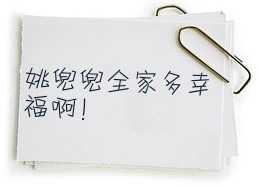 姚兜兜全家多幸
福啊!